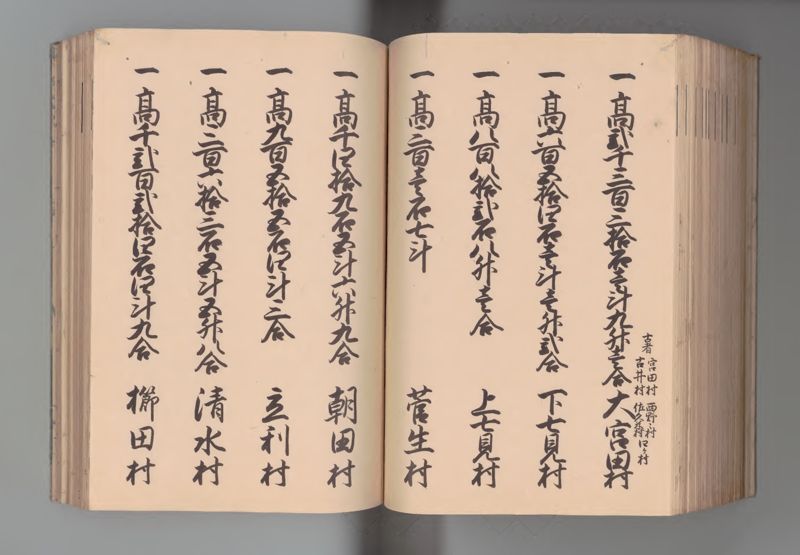 古者 宮田村 西野々村
吉井村 四ケ村
一 高弐千三百三拾石壱斗九升壱合 大宮田村
一 高六百五拾四石壱斗壱升弐合 下七見村
一 高八百八拾弐石八升壱合 上七見村
一 高三百壱石七斗 菅生村
一 高千四拾九石五斗六升九合 朝田村
一 高九百五拾五石四斗三合 立利村
一 高三百六拾三石五斗五升八合 清水村
一 高千弐百弐拾四石四斗九合 櫛田村